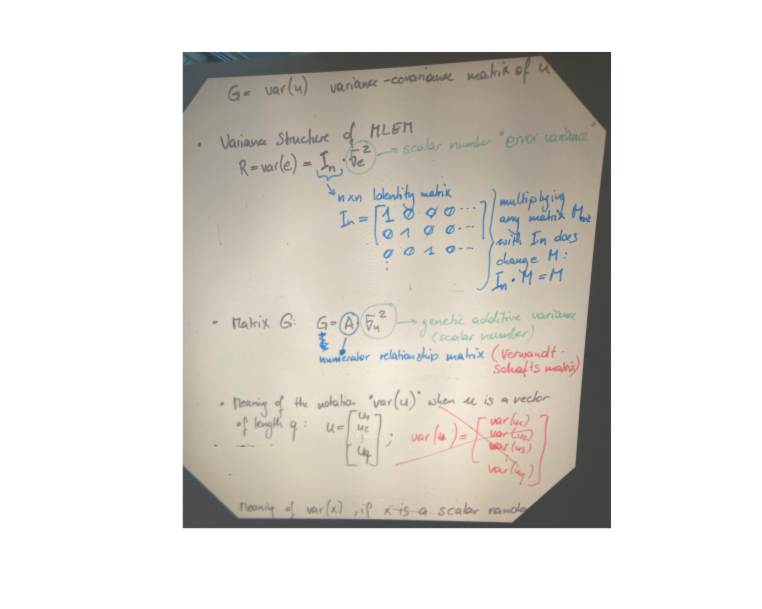 G = var(u) variance-covariance matrix of u
• Variance Structure of MLEM
R = var(e) = In · σe² → scalar number "error variance"
n×n Identity matrix
In = [1 0 0 0 ...
0 1 0 0 ...
0 0 1 0 ...
⋮
multiplying
any matrix M
with In does
change M:
In · M = M
• Matrix G: G = A σu² → genetic additive variance
(scalar number)
numerator relationship matrix (Verwandt-
schafts matrix)
• Meaning of the notation "var(u)" when u is a vector
of length q: u = [u1 u2 ⋮ uq]; var(u) = [var(u1) var(u2) var(u3) ⋮ var(uq)]
Meaning of var(x), if x is a scalar